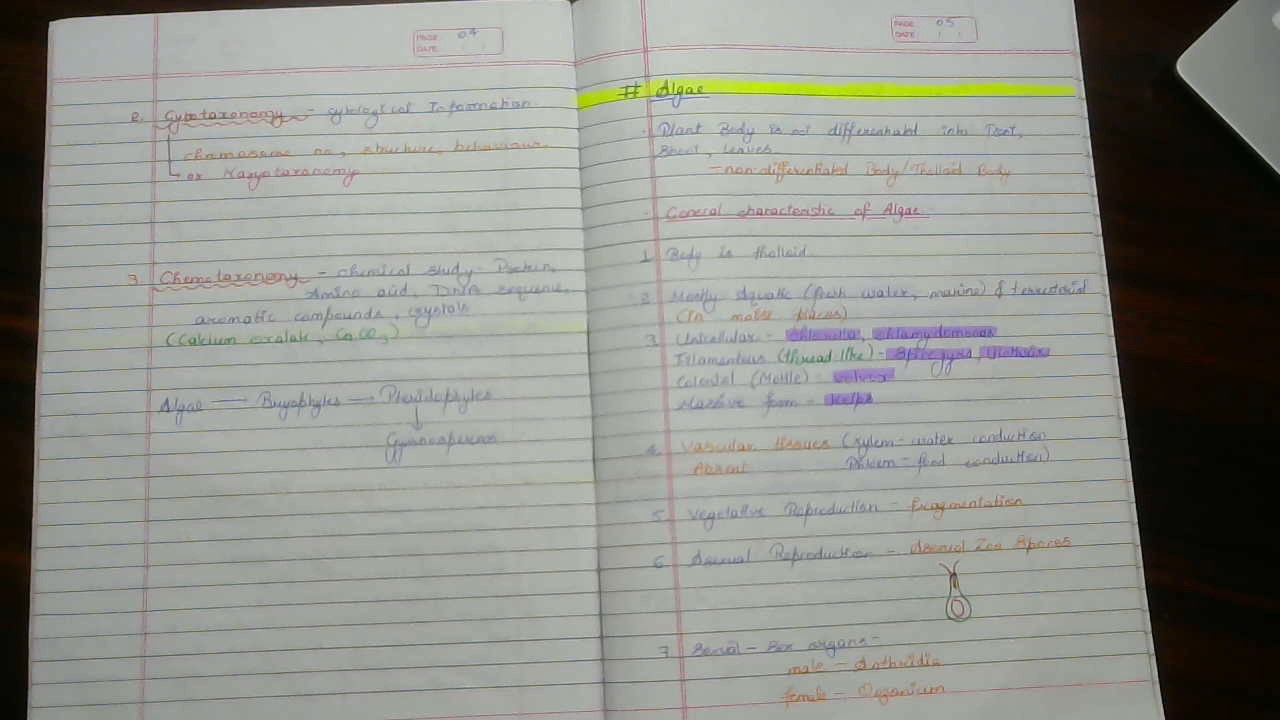 PAGE 04
DATE
2. Cytotaxonomy - cytological Information
chomosome no, structure, behaviour
or Karyotaxonomy
3. Chemotaxonomy - chemical study- Protein,
Amino acid, DNA sequence,
aromatic compounds, crystals
(Calcium oxalate, CaCO3)
Algae → Bryophytes → Pteridophytes
Gymnosperms
PAGE 05
DATE
# Algae
Plant Body is not differentiated into Root,
Shoot, Leaves
- non-differentiated Body/Thalloid Body
General characteristic of Algae
1 Body is thalloid
2 Mostly Aquatic (fresh water, marine) & terrestrial
(In moist places)
3 Unicellular - chlorella, chlamydomonas
Filamentous (thread like) - Spirogyra, Ulothrix
Colonial (Motile) - volvox
Massive form - kelps
4 Vascular tissues (xylem - water conduction
Absent Phloem - food conduction)
5 Vegetative Reproduction - fragmentation
6 Asexual Reproduction - Asexual Zoo Spores
7 Sexual - Sex organs -
male - Anthridia
female - Organium